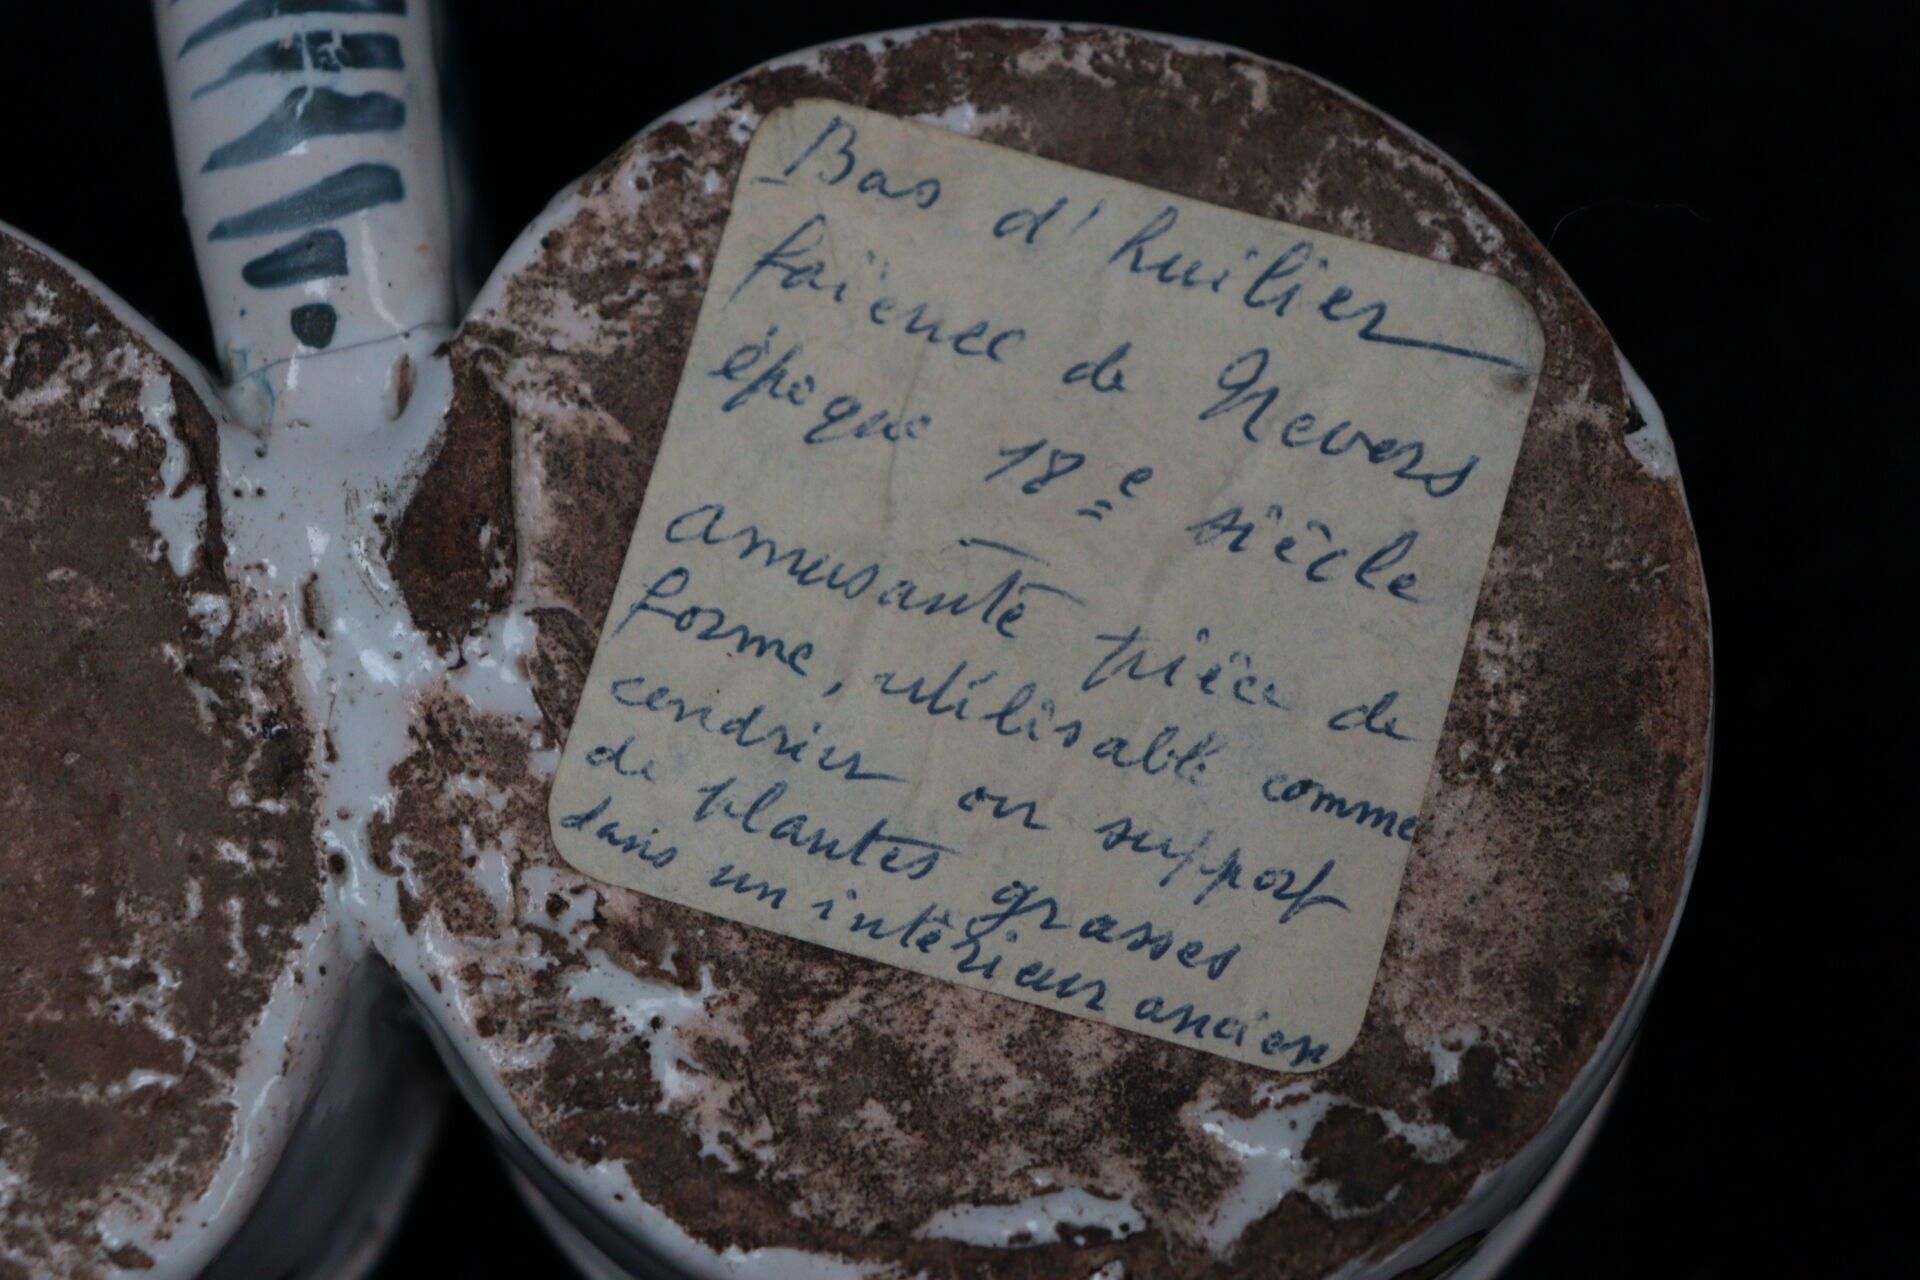 Bas d'huilier
faïence de Nevers
époque 18e siècle
amusante pièce de
forme, utilisable comme
cendrier ou support
de plantes grasses
dans un intérieur ancien